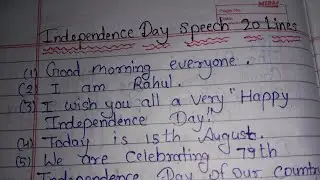 Independence Day Speech 20 Lines
(1) Good morning everyone.
(2) I am Rahul.
(3) I wish you all a very "Happy
Independence Day!"
(4) Today is 15th August.
(5) We are celebrating 79th
Independence Day of our country